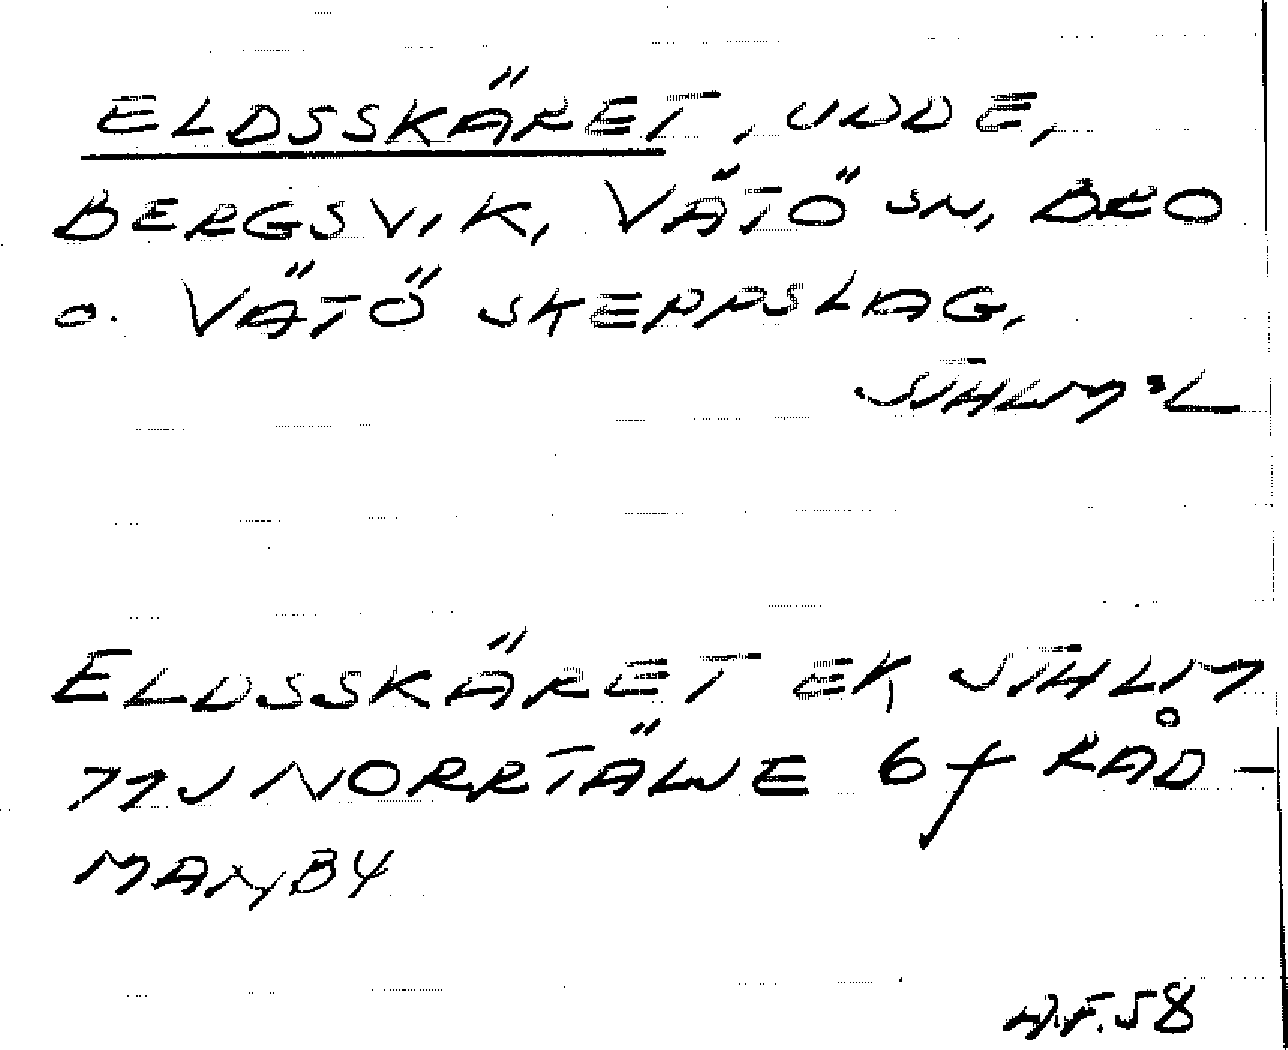 ELDSSKÄRET, UDDE,
BERGSVIK, VÄTÖ SN, BRO
O. VÄTÖ SKEPPSLAG,
STHLMS L
ELDSSKÄRET EK STHLM
NORRTÄLJE 6f RÅD-
MANBY
58